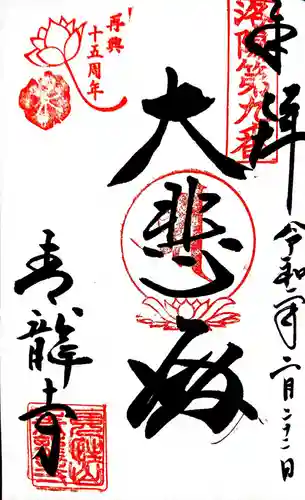 奉拝
洛陽第九番
令和四年二月二十二日
大悲殿
再興
十五周年
青龍寺